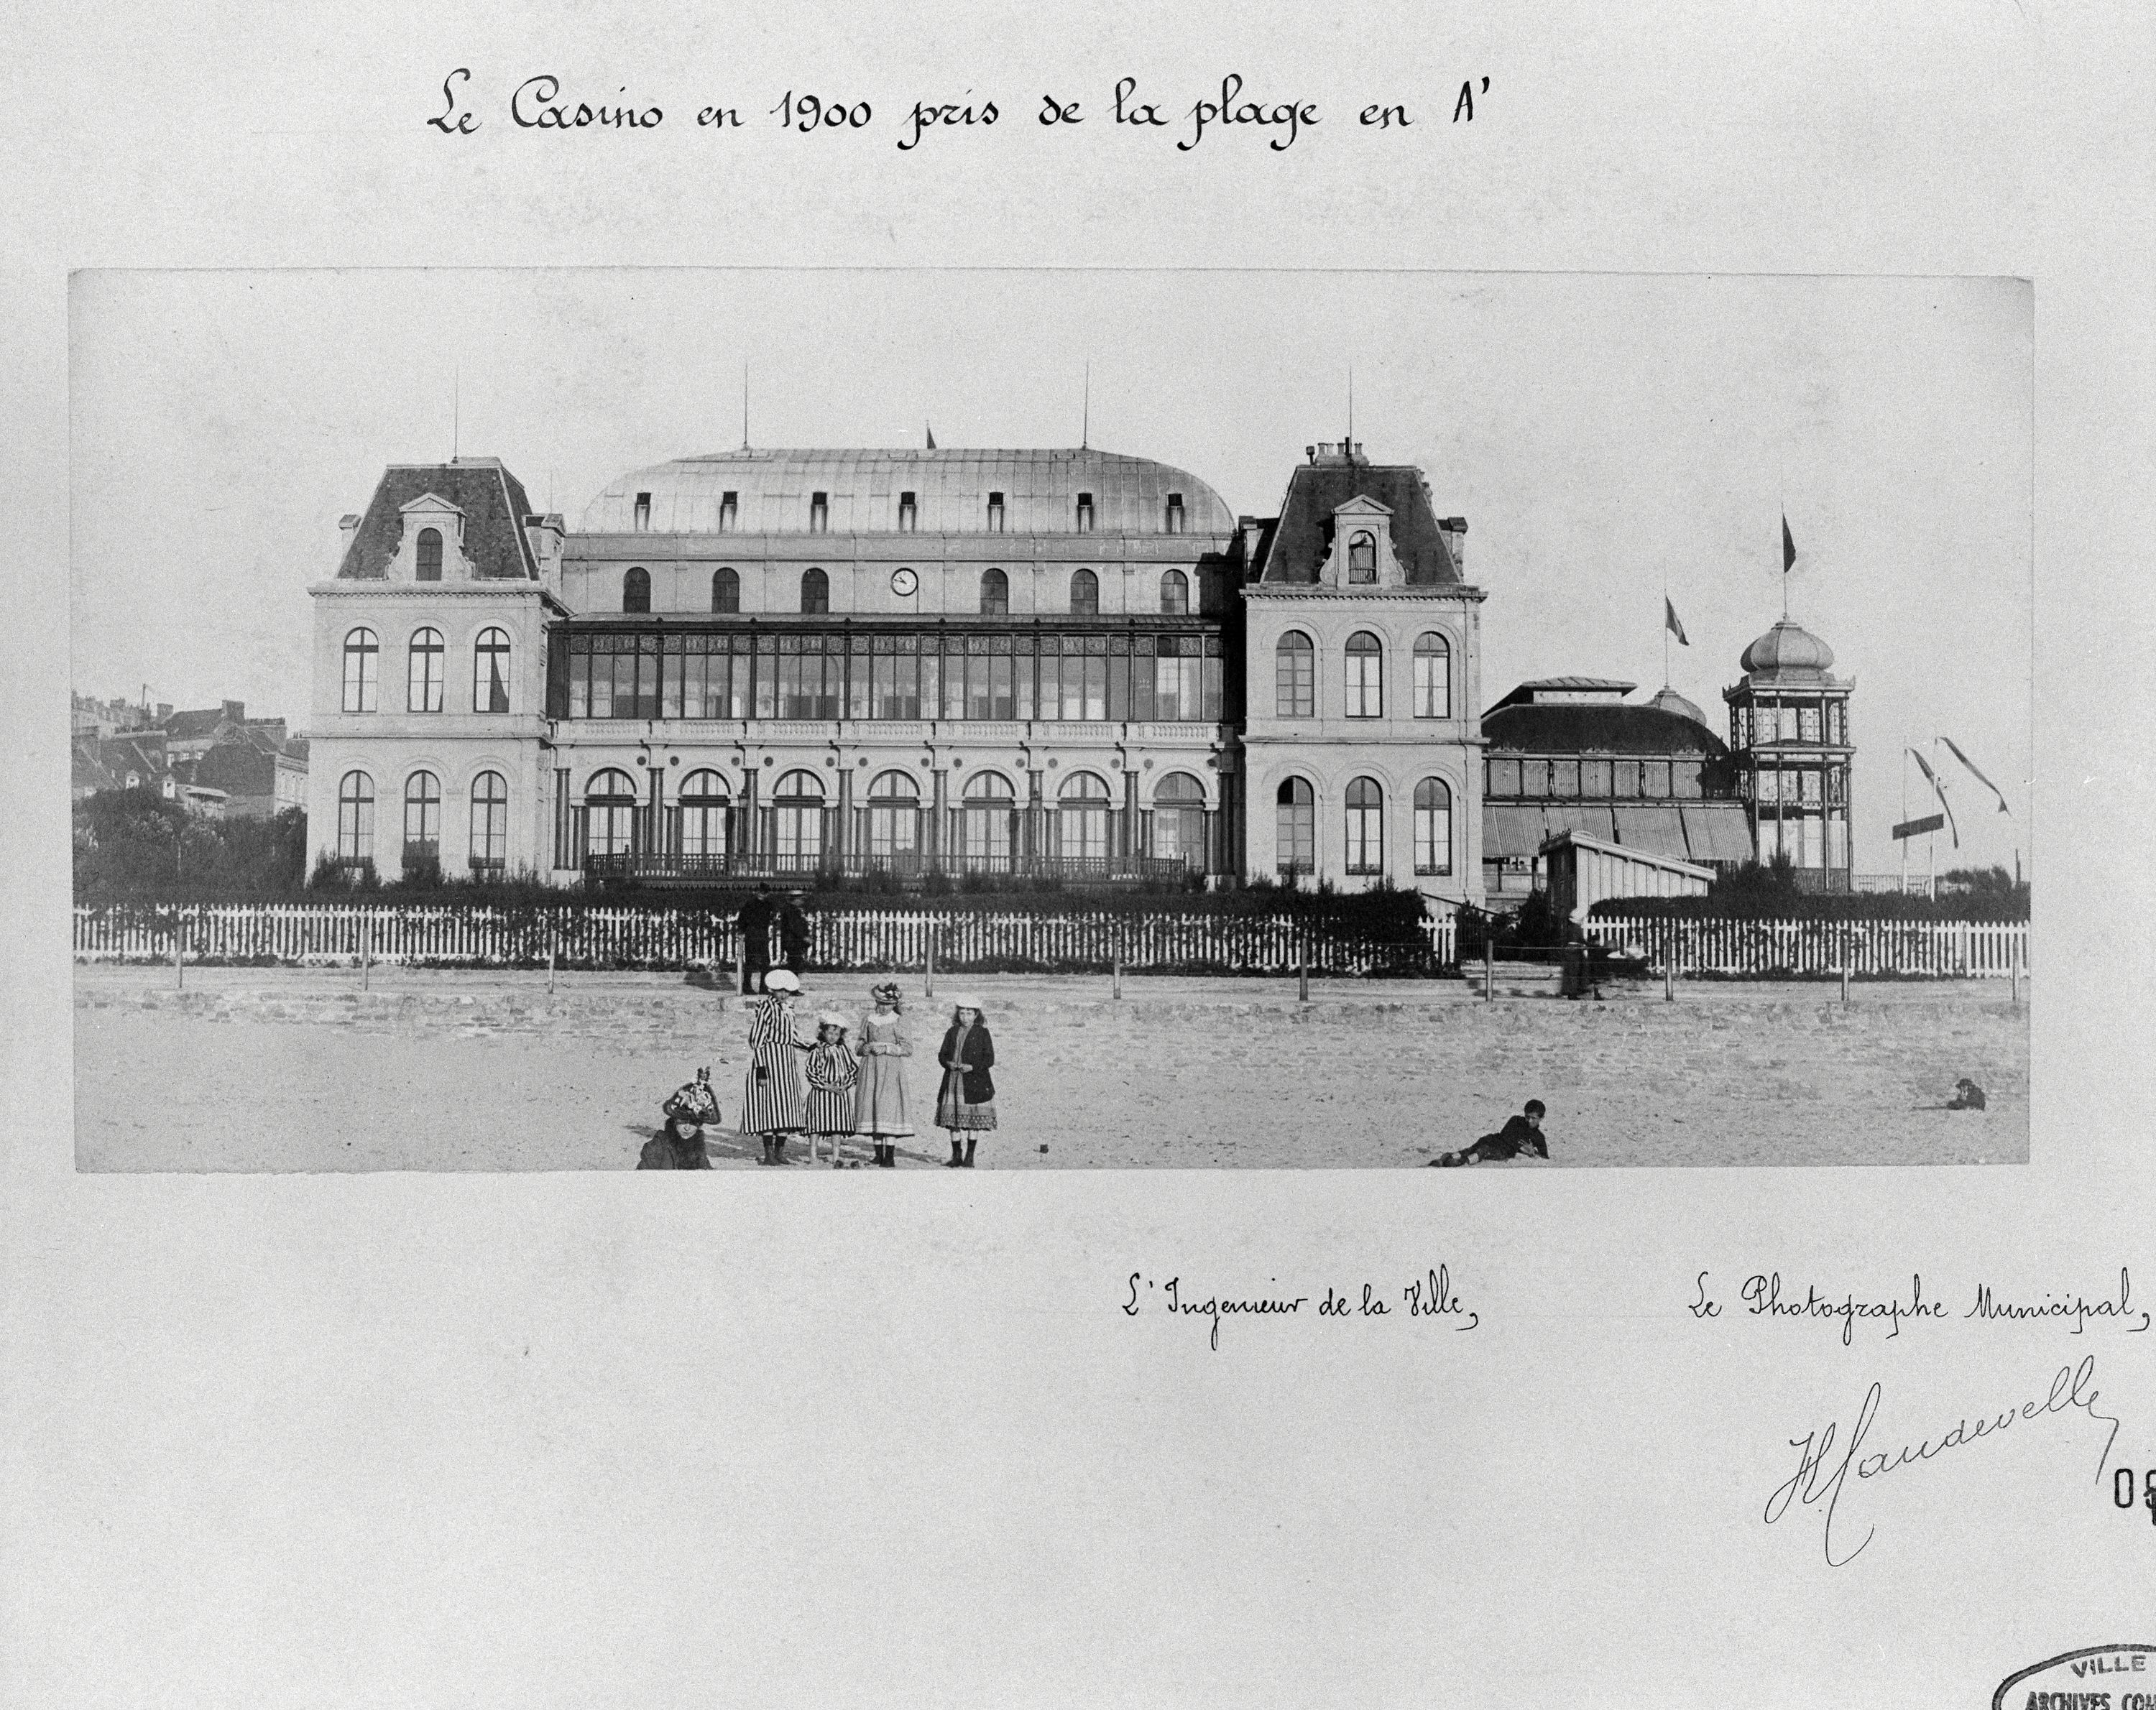 Le Casino en 1900 pris de la plage en A'
L'Ingenieur de la Ville,
Le Photographe Municipal,
VILLE
ARCHIVES COM